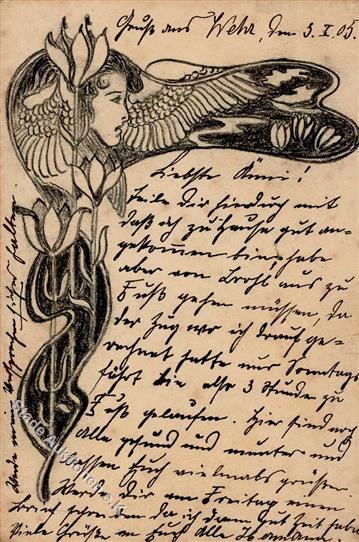 Gruß aus Wehr, den 3. X. 05.
Liebste Änni!
Teile Dir hierdurch mit
daß ich zu Hause gut an-
gekommen bin, habe
aber von Brohl aus zu
Fuß gehen müssen, da
der Zug wo ich drauf ge-
rechnet hatte nur Sonntags
fährt bin also 3 Stunde zu
Fuß gelaufen. Hier sind noch
Alle gesund und munter und
lassen Euch vielmals grüßen.
Werde Dir am Freitag einen
Brief schreiben da ich dann gut Zeit habe
Viele Grüße an Euch Alle
Werde mein Versprechen halten.